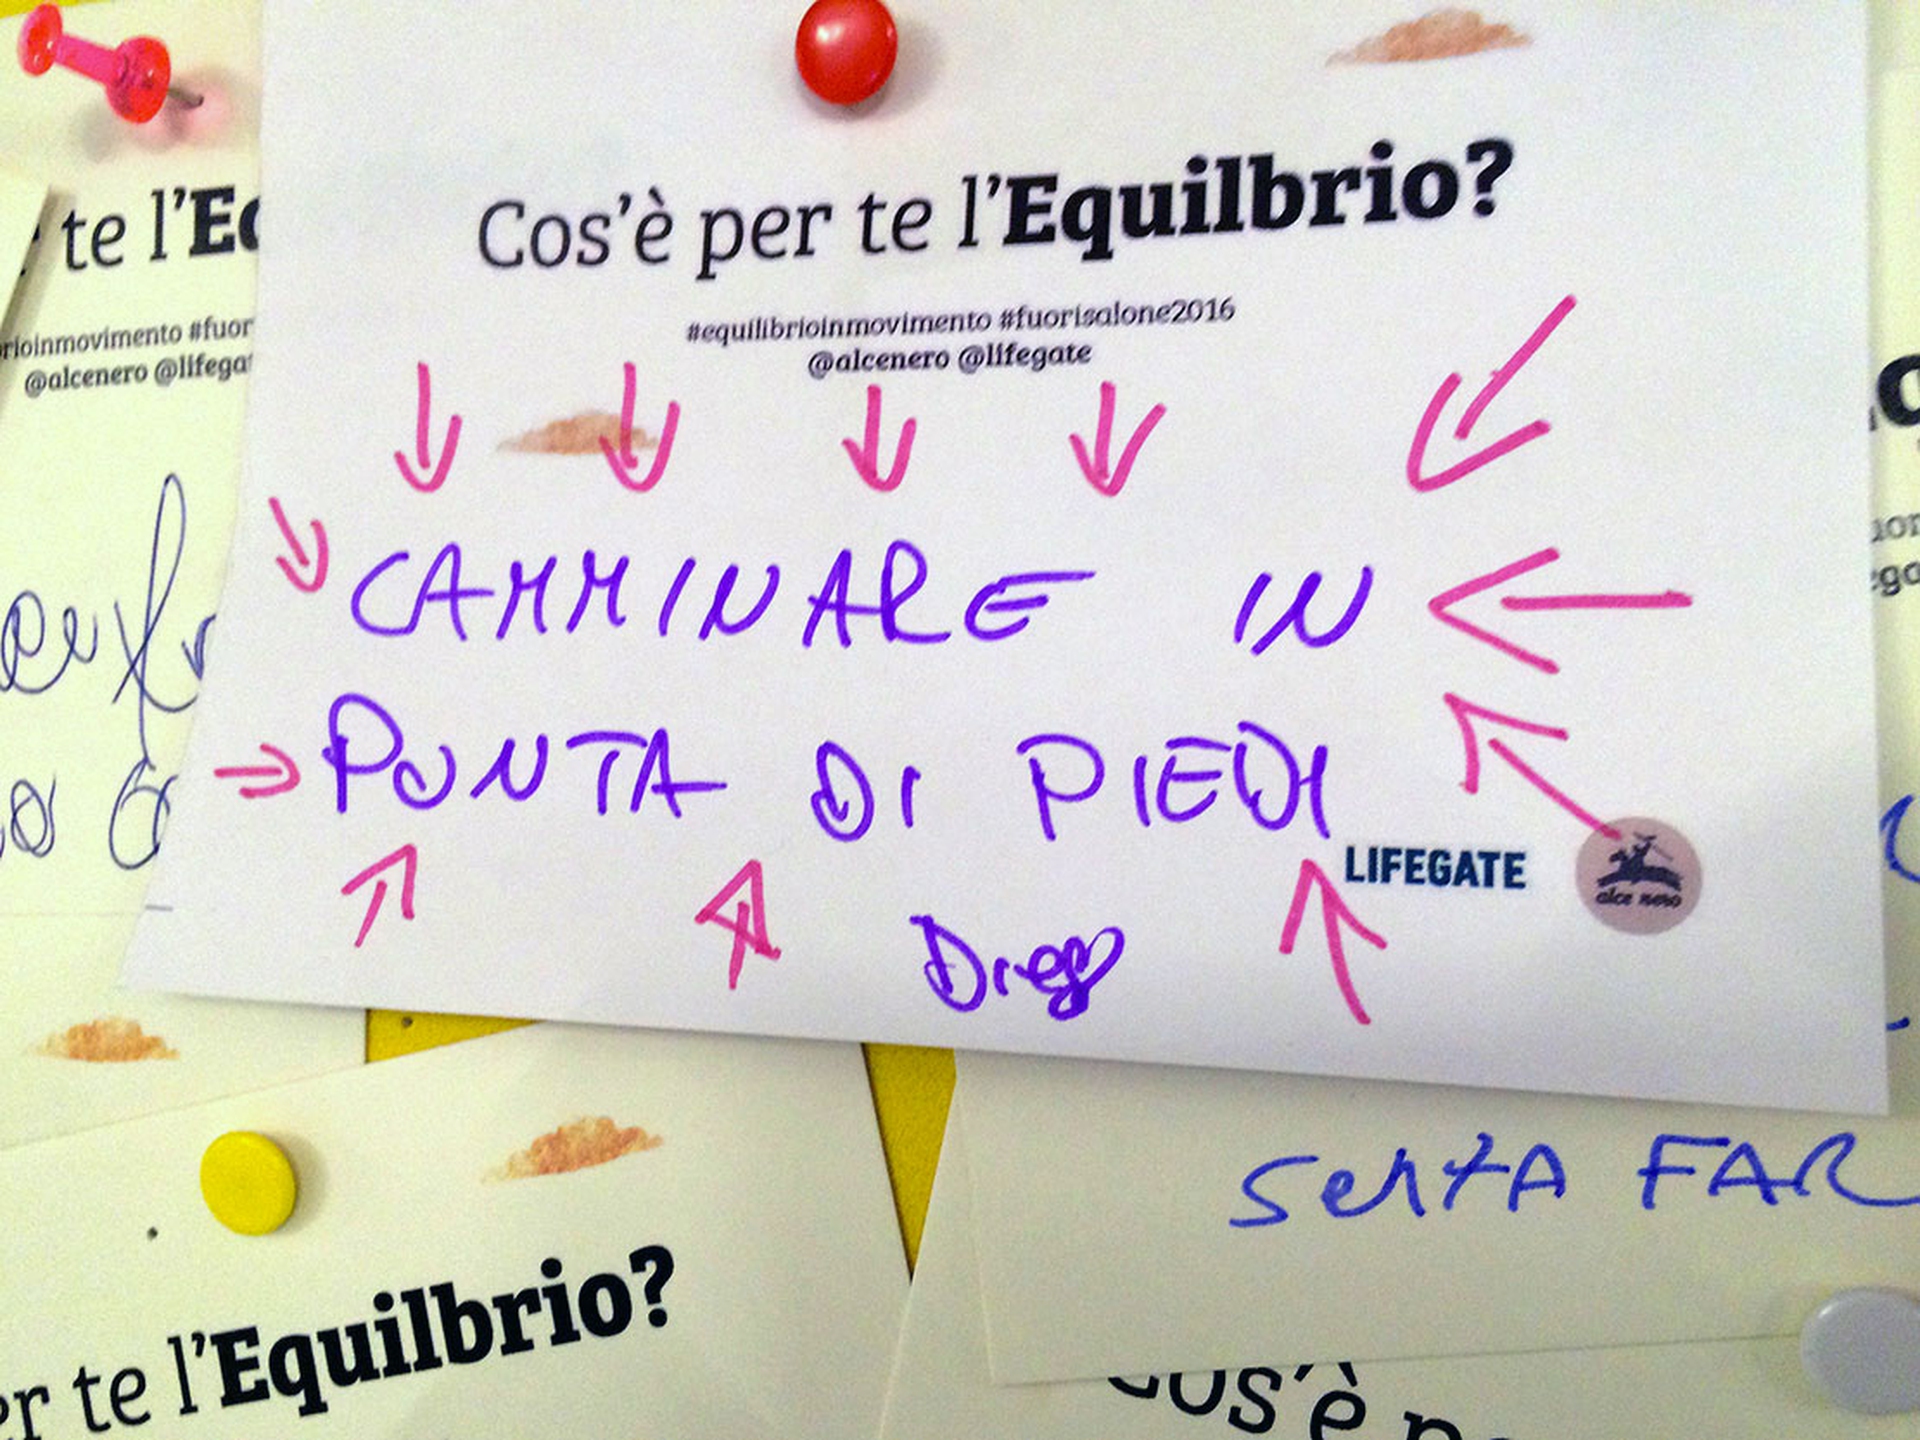 Cos'è per te l'Equilbrio?
#equilibrioinmovimento #fuorisalone2016
@alcenero @lifegate
CAMMINARE IN
PUNTA DI PIEDI
LIFEGATE
alce nero
Diego
te l'Eq
rioinmovimento #fuor
@alcenero @lifegat
er te l'Equilbrio?
senza FAR
Cos'è p